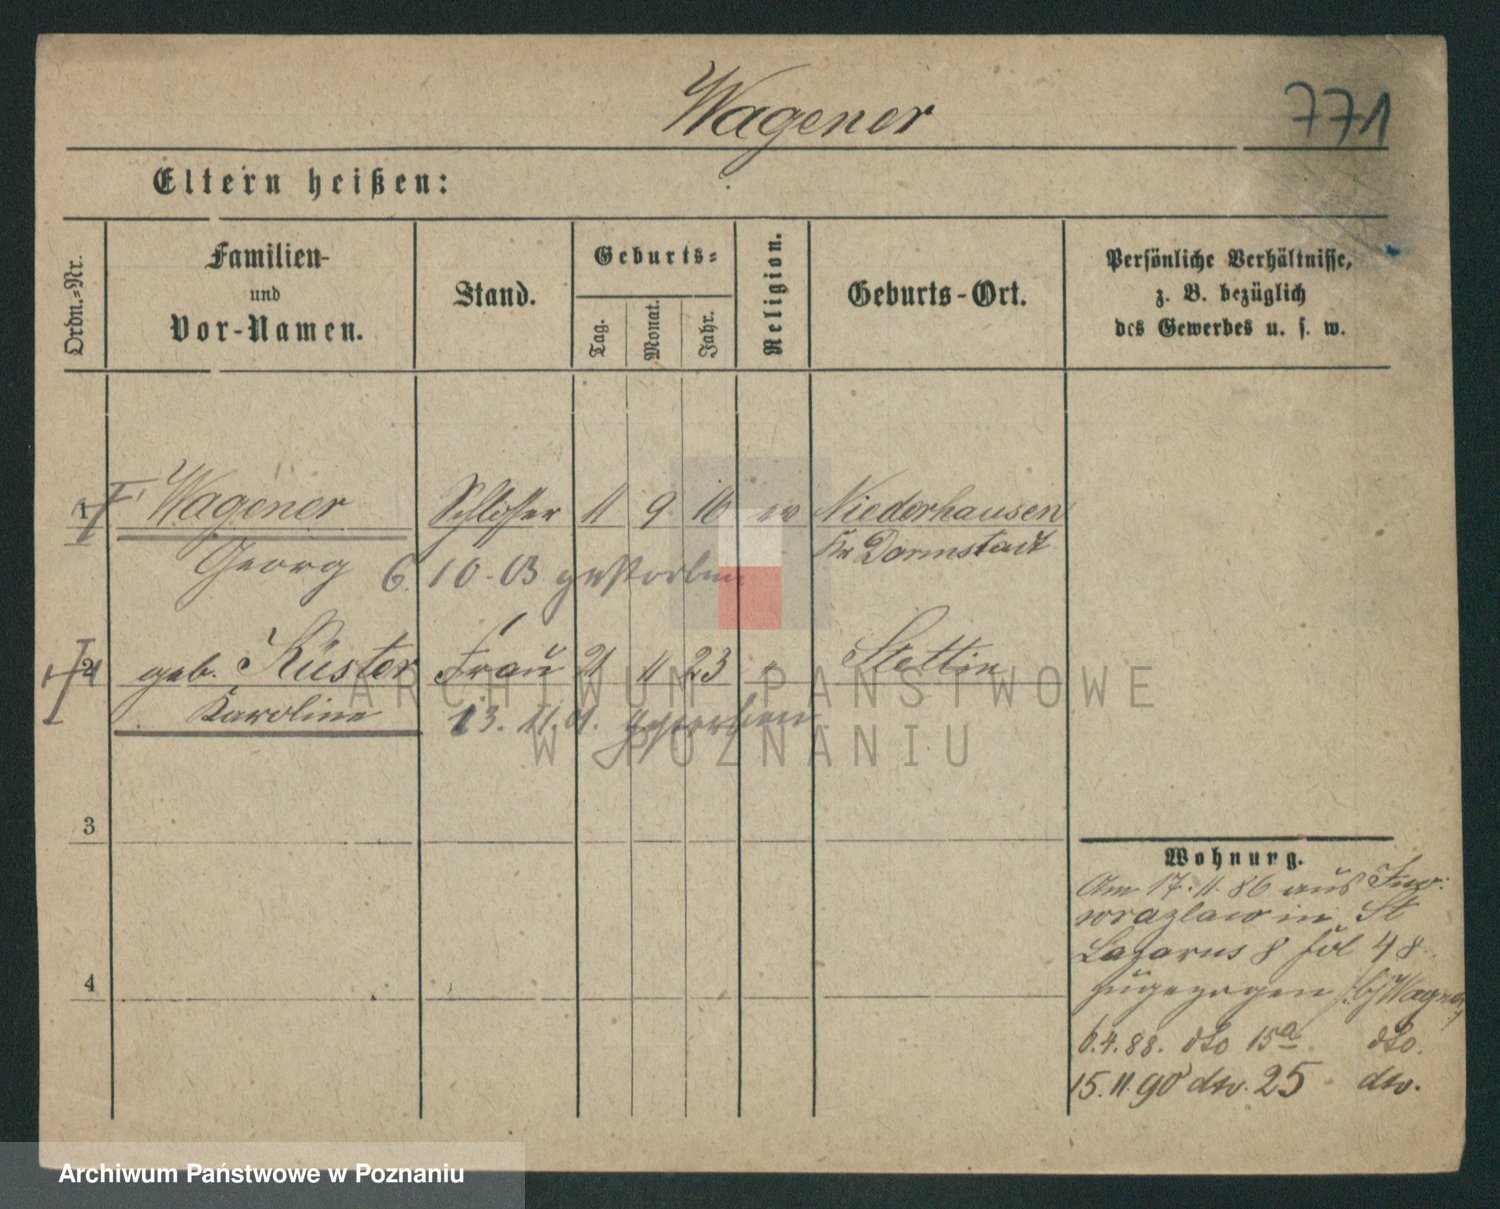 Wagener
771
Eltern heißen:
Ordn.-Nr.
Familien-
und
Vor-Namen.
Stand.
Geburts-
Tag.
Monat.
Jahr.
Religion.
Geburts-Ort.
Persönliche Verhältnisse,
z. B. bezüglich
des Gewerbes u. s. w.
1 Wagener Schlosser 11 9 16 ev Niederhausen
Georg 6. 10. 03. gestorben Kr Darmstadt
2 geb. Küster Frau 21 11 23 Stettin
Karoline 13. 11. 01. gestorben
3
4
Wohnung.
Am 17.11.86 aus Ino-
wrazlaw in St
Lazarus 8 fol 48
zugezogen /b/ Wagner/
6.4.88. dto 15a dto.
15.11.90 dto. 25 dto.
ARCHIWUM PAŃSTWOWE
W POZNANIU
Archiwum Państwowe w Poznaniu